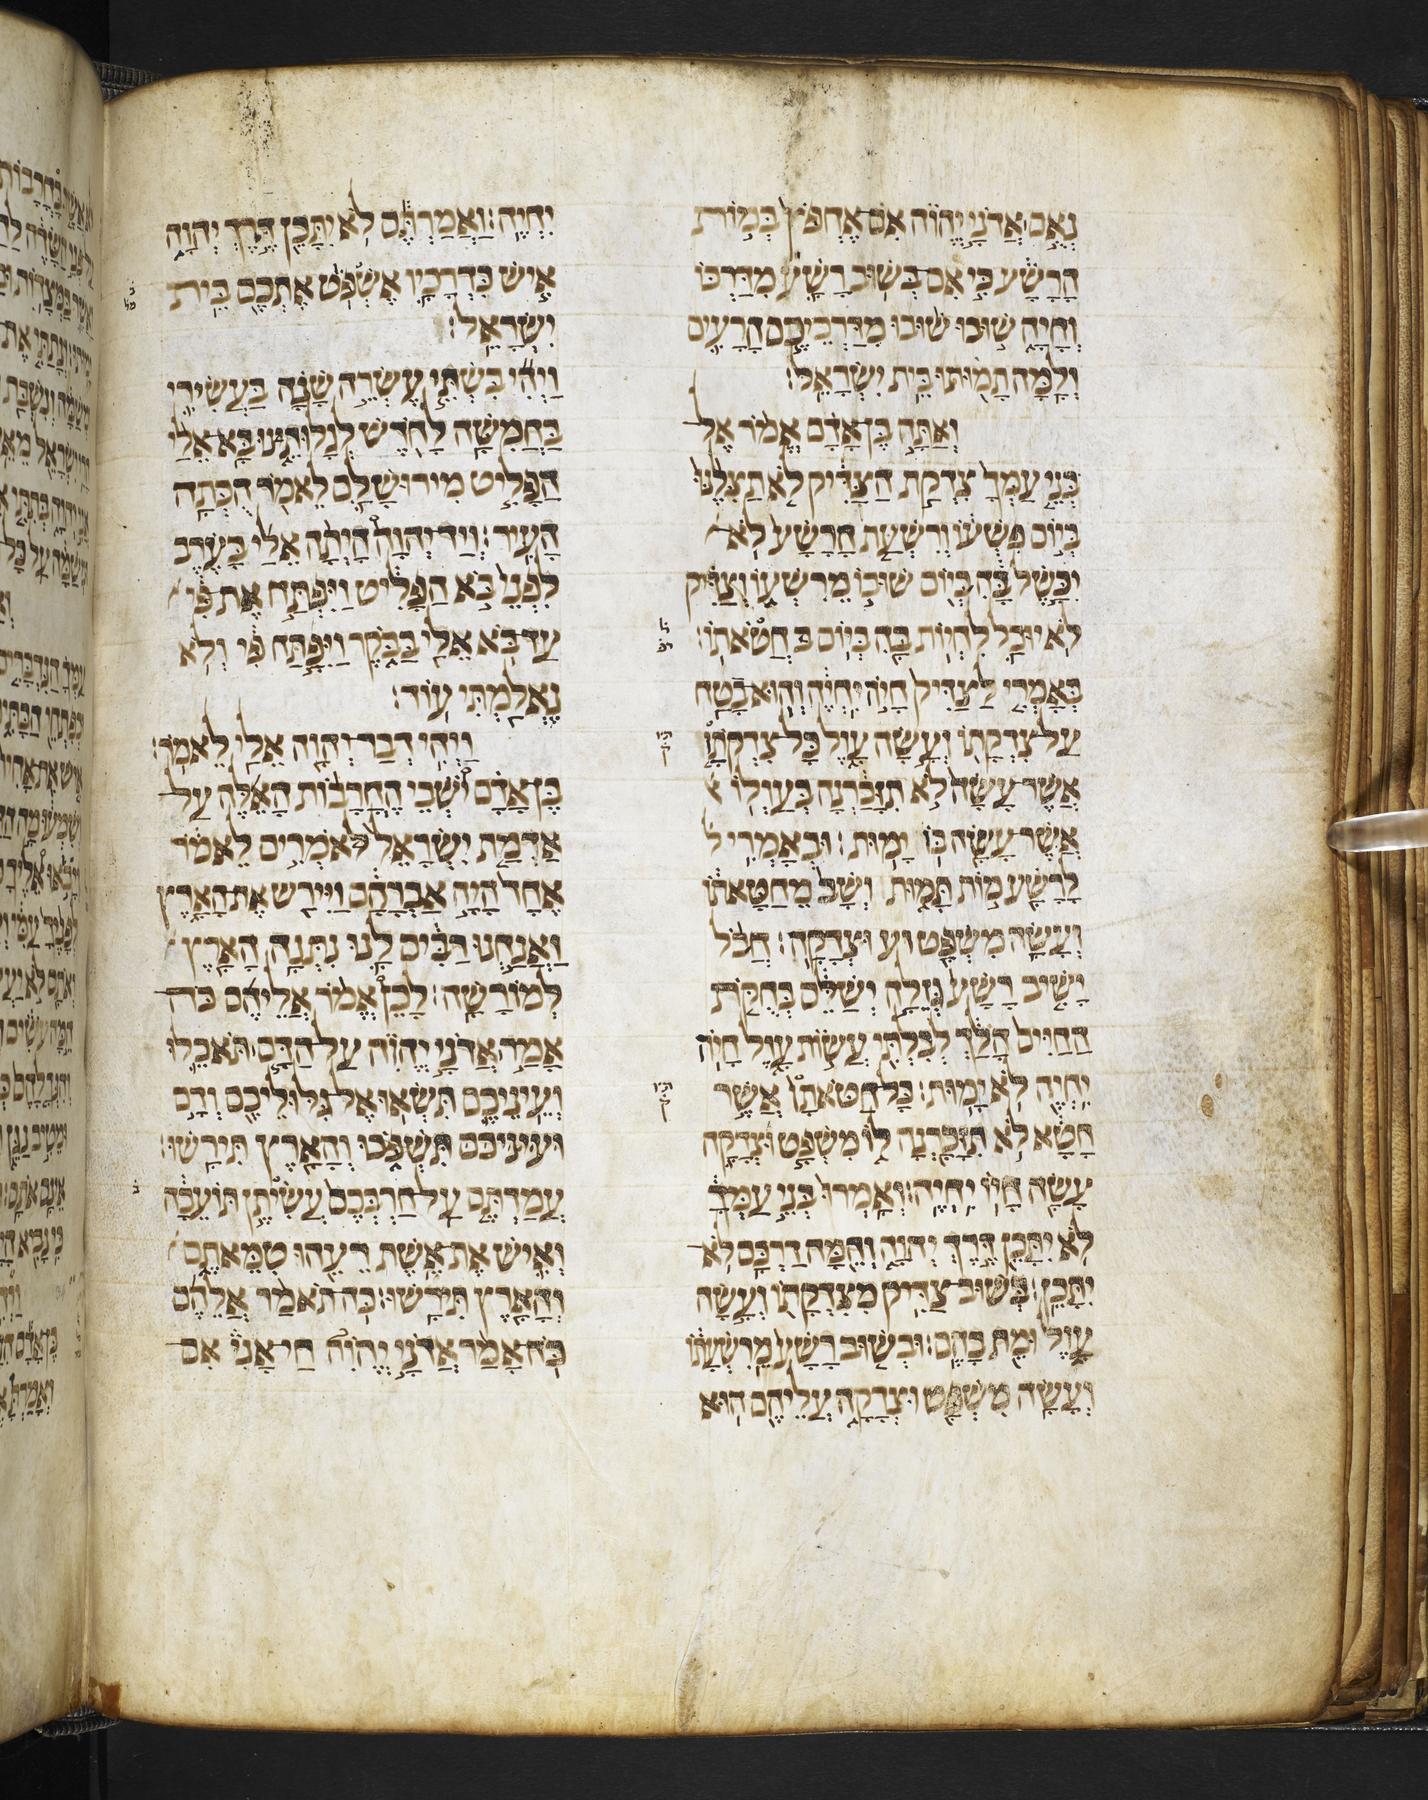 נְאֻם אֲדֹנָי יֱהוִֹה אִם אֶחְפֹּץ בְּמוֹת
הָרָשָׁע כִּי אִם בְּשׁוּב רָשָׁע מִדַּרְכּוֹ
וְחָיָה שׁוּבוּ שׁוּבוּ מִדַּרְכֵיכֶם הָרָעִים
וְלָמָּה תָמוּתוּ בֵּית יִשְׂרָאֵל׃
וְאַתָּה בֶן אָדָם אֱמֹר אֶל
בְּנֵי עַמְּךָ צִדְקַת הַצַּדִּיק לֹא תַצִּלֶנּוּ
בְּיוֹם פִּשְׁעוֹ וְרִשְׁעַת הָרָשָׁע לֹא
יִכָּשֶׁל בָּהּ בְּיוֹם שׁוּבוֹ מֵרִשְׁעוֹ וְצַדִּיק
לֹא יוּכַל לִחְיוֹת בָּהּ בְּיוֹם חֲטֹאתוֹ׃
בְּאָמְרִי לַצַּדִּיק חָיֹה יִחְיֶה וְהוּא בָטַח
עַל צִדְקָתוֹ וְעָשָׂה עָוֶל כָּל צִדְקֹתָו
אֲשֶׁר עָשָׂה לֹא תִזָּכַרְנָה בְּעַוְלוֹ
אֲשֶׁר עָשָׂה בּוֹ יָמוּת׃ וּבְאָמְרִי ל
לָרָשָׁע מוֹת תָּמוּת וְשָׁב מֵחַטָּאתוֹ
וְעָשָׂה מִשְׁפָּט וע וּצְדָקָה׃ חֲבֹל
יָשִׁיב רָשָׁע גְּזֵלָה יְשַׁלֵּם בְּחֻקּוֹת
הַחַיִּים הָלַךְ לְבִלְתִּי עֲשׂוֹת עָוֶל חָיוֹ
יִחְיֶה לֹא יָמוּת׃ כָּל חַטֹּאתָו אֲשֶׁר
חָטָא לֹא תִזָּכַרְנָה לוֹ מִשְׁפָּט וּצְדָקָה
עָשָׂה חָיוֹ יִחְיֶה׃ וְאָמְרוּ בְּנֵי עַמְּךָ
לֹא יִתָּכֵן דֶּרֶךְ יְהוָה וְהֵמָּה דַרְכָּם לֹא
יִתָּכֵן׃ בְּשׁוּב צַדִּיק מִצִּדְקָתוֹ וְעָשָׂה
עָוֶל וּמֵת בָּהֶם׃ וּבְשׁוּב רָשָׁע מֵרִשְׁעָתוֹ
וְעָשָׂה מִשְׁפָּט וּצְדָקָה עֲלֵיהֶם הוּא
יִחְיֶה׃ וַאֲמַרְתֶּם לֹא יִתָּכֵן דֶּרֶךְ יְהוָה
אִישׁ כִּדְרָכָיו אֶשְׁפֹּט אֶתְכֶם בֵּית
יִשְׂרָאֵל׃
וַיְהִי בִּשְׁתֵּי עֶשְׂרֵה שָׁנָה בַּעֲשִׂירִי
בַּחֲמִשָּׁה לַחֹדֶשׁ לְגָלוּתֵנוּ בָּא אֵלַי
הַפָּלִיט מִירוּשָׁלִַם לֵאמֹר הֻכְּתָה
הָעִיר׃ וְיַד יְהוָה הָיְתָה אֵלַי בָּעֶרֶב
לִפְנֵי בּוֹא הַפָּלִיט וַיִּפְתַּח אֶת פִּי
עַד בֹּא אֵלַי בַּבֹּקֶר וַיִּפָּתַח פִּי וְלֹא
נֶאֱלַמְתִּי עוֹד׃
וַיְהִי דְבַר יְהוָה אֵלַי לֵאמֹר׃
בֶּן אָדָם יֹשְׁבֵי הֶחֳרָבוֹת הָאֵלֶּה עַל
אַדְמַת יִשְׂרָאֵל אֹמְרִים לֵאמֹר
אֶחָד הָיָה אַבְרָהָם וַיִּירַשׁ אֶת הָאָרֶץ
וַאֲנַחְנוּ רַבִּים לָנוּ נִתְּנָה הָאָרֶץ
לְמוֹרָשָׁה׃ לָכֵן אֱמֹר אֲלֵיהֶם כֹּה
אָמַר אֲדֹנָי יֱהוִֹה עַל הַדָּם תֹּאכֵלוּ
וְעֵינֵיכֶם תִּשְׂאוּ אֶל גִּלּוּלֵיכֶם וְדָם
תִּשְׁפֹּכוּ וְהָאָרֶץ תִּירָשׁוּ׃
עֲמַדְתֶּם עַל חַרְבְּכֶם עֲשִׂיתֶן תּוֹעֵבָה
וְאִישׁ אֶת אֵשֶׁת רֵעֵהוּ טִמֵּאתֶם
וְהָאָרֶץ תִּירָשׁוּ׃ כֹּה תֹאמַר אֲלֵהֶם
כֹּה אָמַר אֲדֹנָי יֱהוִֹה חַי אָנִי אִם